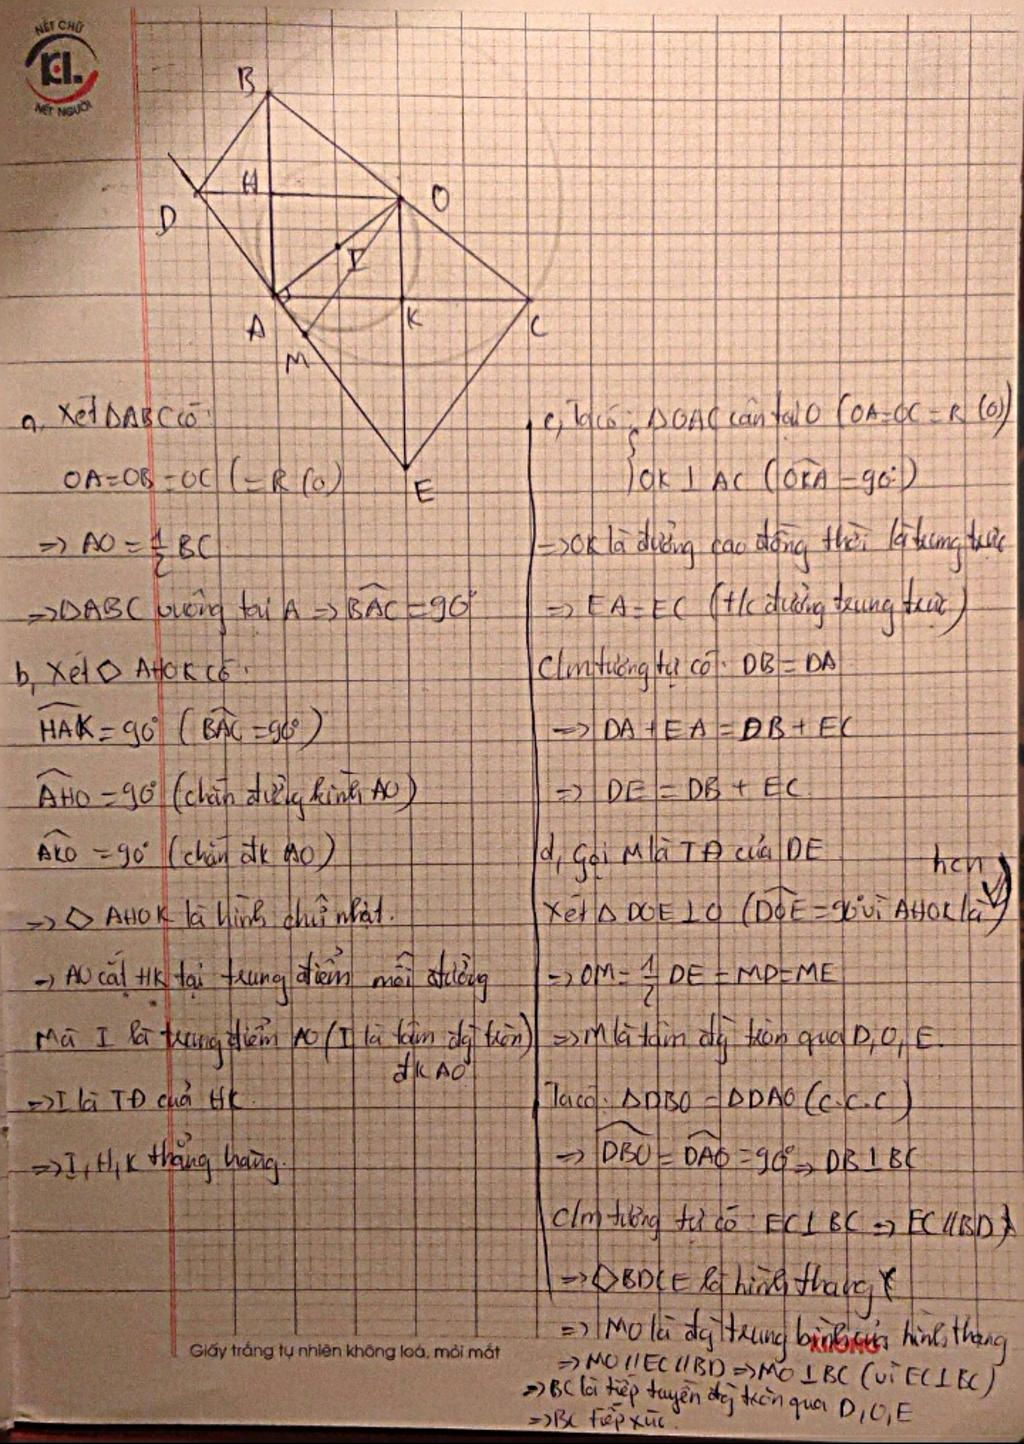 NÉT CHỮ
KL.
NẾT NGƯỜI
B
H
D
O
I
A
K
C
M
E
a, Xét ΔABC có:
OA=OB=OC (=R (O))
=> AO = 1/2 BC
=> ΔABC vuông tại A => BAC = 90°
b, Xét ◇ AHOK có:
HAK = 90° (BAC = 90°)
AHO = 90° (chắn đường kính AO)
AKO = 90° (chắn đk AO)
=> ◇ AHOK là hình chữ nhật.
-> AO cắt HK tại trung điểm mỗi đường
Mà I là trung điểm AO (I là tâm đg tròn)
đk AO
=> I là TĐ của HK
=> I, H, K thẳng hàng.
c, Ta có: ΔOAC cân tại O (OA=OC=R (O))
OK ⊥ AC (OKA = 90°)
=> OK là đường cao đồng thời là trung trực
=> EA = EC (t/c đường trung trực)
C/m tương tự có: DB = DA
=> DA + EA = DB + EC
=> DE = DB + EC
d, Gọi M là TĐ của DE
hcn
Xét Δ DOE ⊥ O (DOE = 90° vì AHOK là)
=> OM = 1/2 DE = MD = ME
=> M là tâm đg tròn qua D, O, E.
Ta có: ΔDBO = ΔDAO (c.c.c)
=> DBO = DAO = 90° => DB ⊥ BC
C/m tương tự có: EC ⊥ BC => EC // BD
=> ◇ BDCE là hình thang
=> MO là đg trung bình của hình thang
=> MO // EC // BD => MO ⊥ BC (vì EC ⊥ BC)
=> BC là tiếp tuyến đg tròn qua D, O, E
=> BC tiếp xúc.
Giấy trắng tự nhiên không loá, mỏi mắt